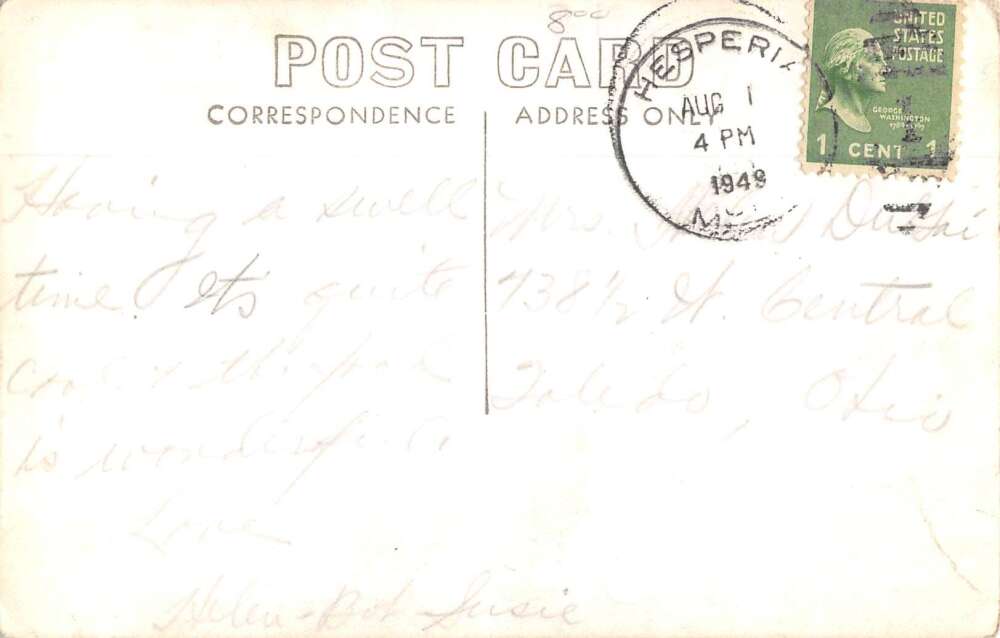 8⁰⁰
POST CARD
CORRESPONDENCE
ADDRESS ONLY
HESPERIA
AUG 1
4 PM
1949
UNITED
STATES
POSTAGE
GEORGE
WASHINGTON
1 CENT 1
Having a swell
time. Its quite
cool & the
is wonderful
Love
Helen - Bob Susie
Mrs.
W. Central
Toledo, Ohio